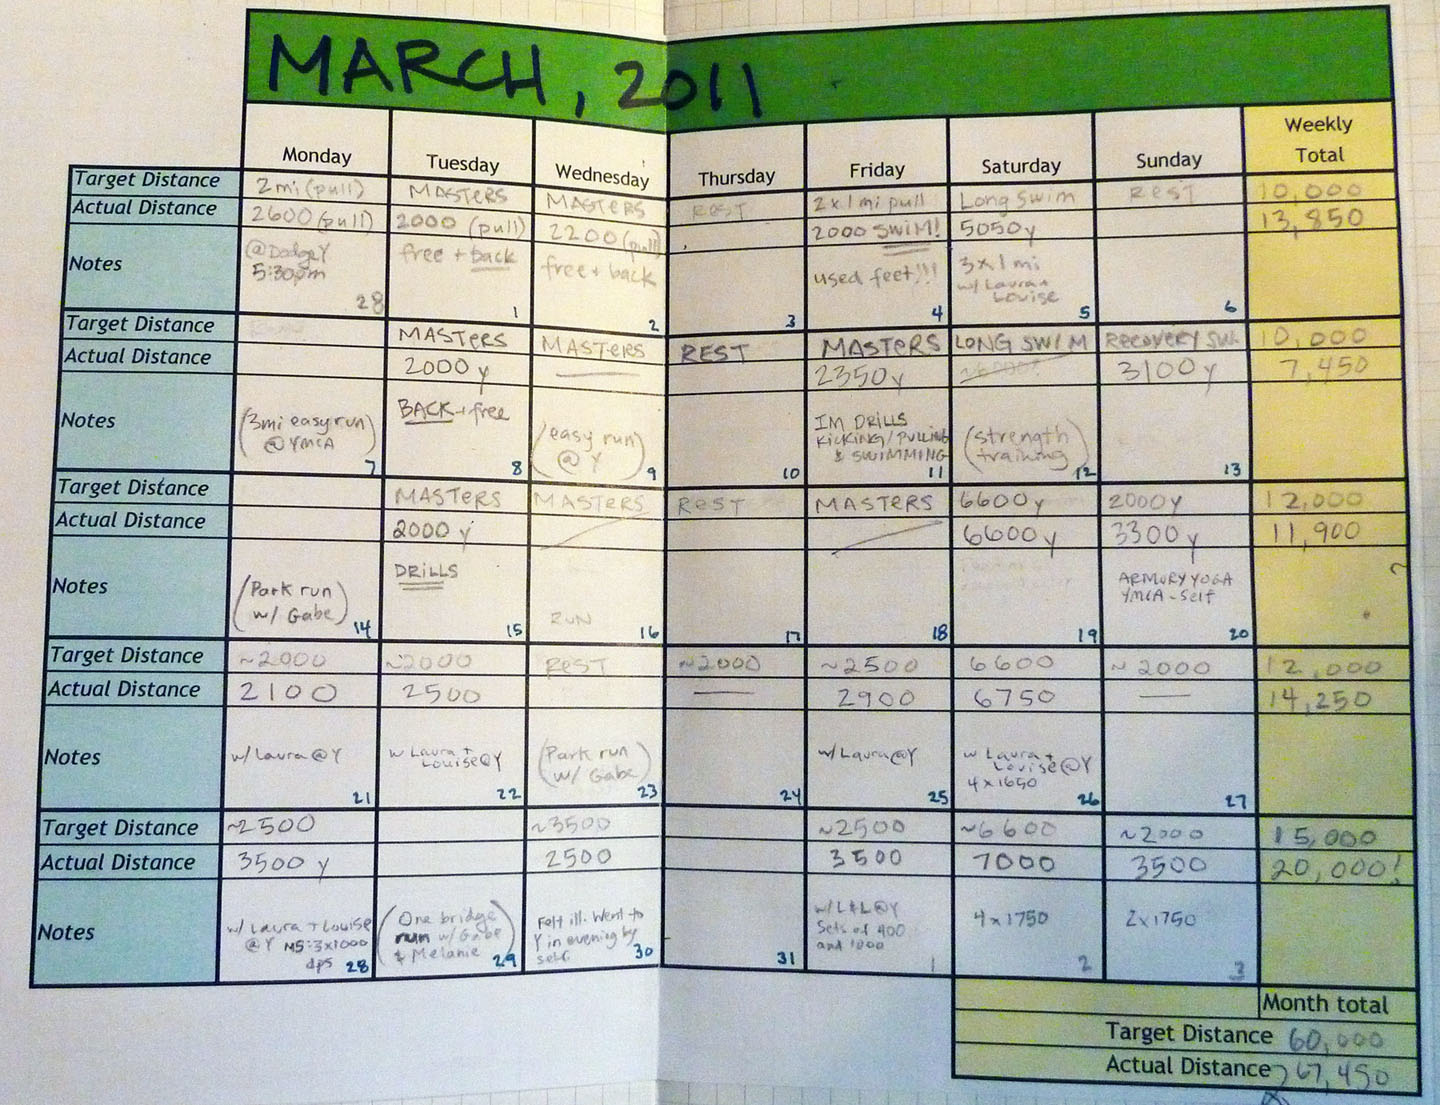 MARCH, 2011
Monday Tuesday Wednesday Thursday Friday Saturday Sunday Weekly Total
Target Distance 2mi (pull) MASTERS MASTERS REST 2x1 mi pull Long Swim REST 10,000
Actual Distance 2600 (pull) 2000 (pull) 2200 (pull) 2000 SWIM! 5050y 13,850
Notes @DodgeY 5:30pm free + back free + back used feet!!! 3x1 mi w/ Laura + Louise
28 1 2 3 4 5 6
Target Distance MASTERS MASTERS REST MASTERS LONG SWIM RECOVERY 10,000
Actual Distance 2000y 2350y 3100y 7,450
Notes (3mi easy run @ YMCA) BACK + free (easy run @ Y) IM DRILLS KICKING/PULLING & SWIMMING (strength training)
7 8 9 10 11 12 13
Target Distance MASTERS MASTERS REST MASTERS 6600y 2000y 12,000
Actual Distance 2000y 6600y 3300y 11,900
Notes (Park run w/ Gabe) DRILLS RUN ARMORY YOGA YMCA - Self
14 15 16 17 18 19 20
Target Distance ~2000 ~2000 REST ~2000 ~2500 6600 ~2000 12,000
Actual Distance 2100 2500 2900 6750 14,250
Notes w/ Laura @Y w Laura + Louise @Y (Park run w/ Gabe) w/ Laura @Y w Laura + Louise @Y 4x1650
21 22 23 24 25 26 27
Target Distance ~2500 ~3500 ~2500 ~6600 ~2000 15,000
Actual Distance 3500y 2500 3500 7000 3500 20,000!
Notes w/ Laura + Louise @Y MS: 3x1000 dps (One bridge run w/ Gabe & Melanie) Felt ill. Went to Y in evening by self. w/ L+L@Y Sets of 400 and 1000 4x1750 2x1750
28 29 30 31 1 2 3
Month total
Target Distance 60,000
Actual Distance 67,450